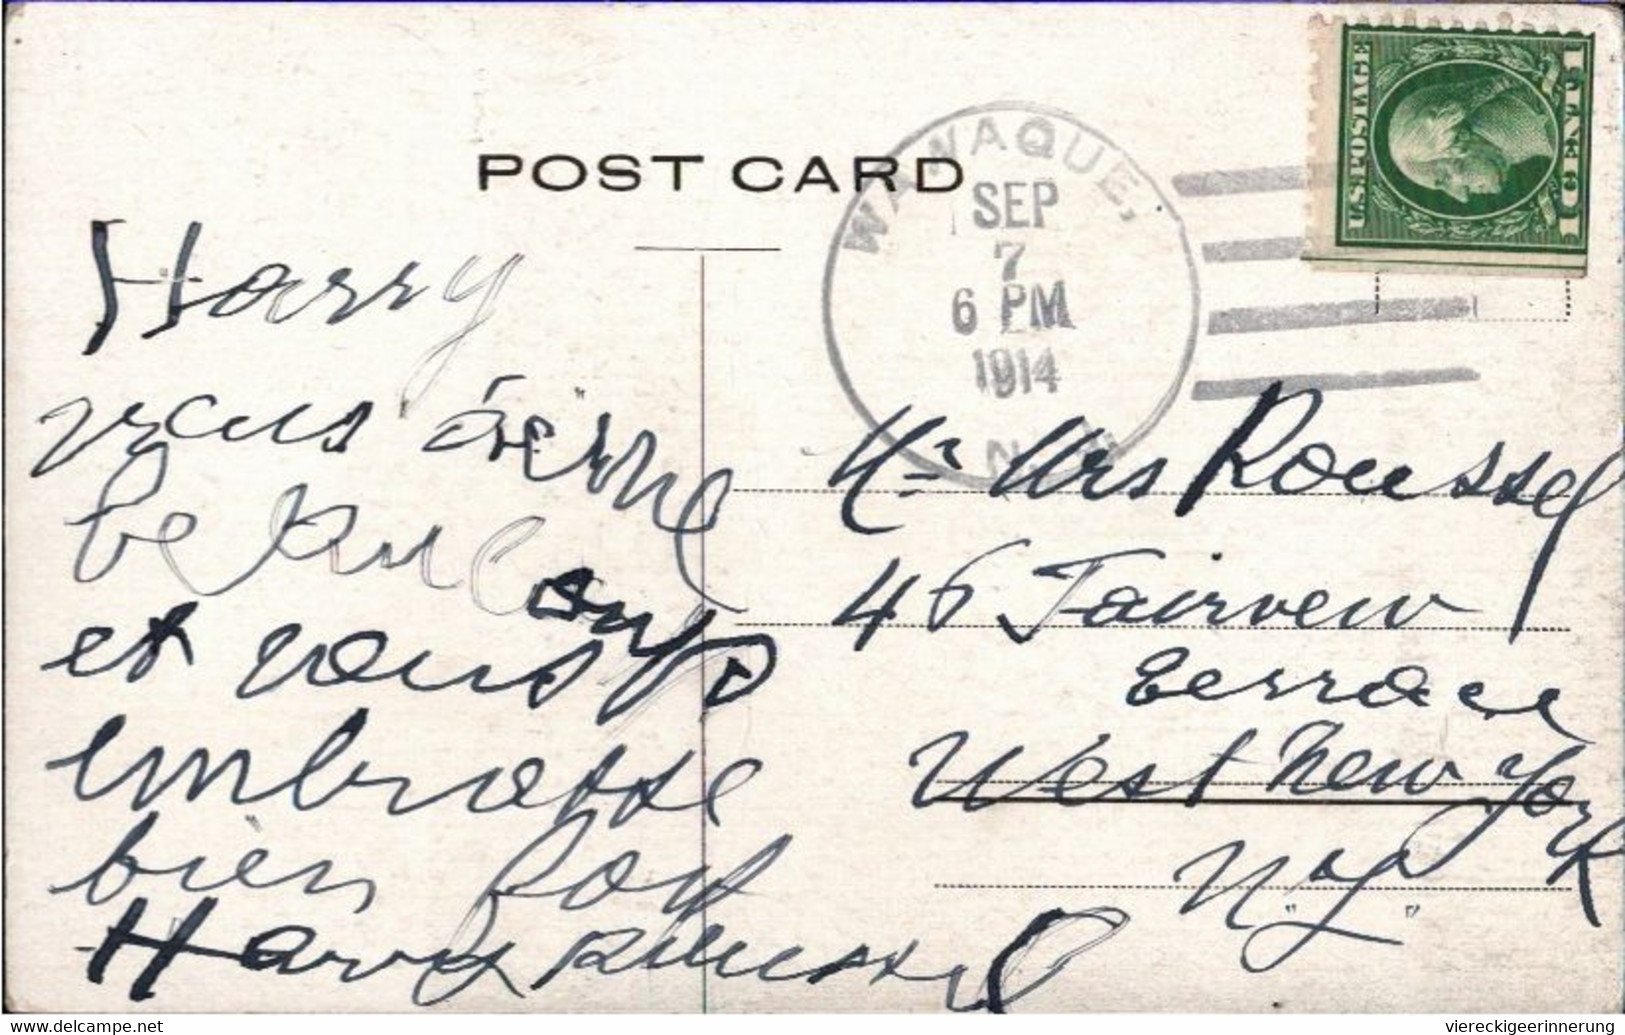 POST CARD
WANAQUE,
SEP
7
6 PM
1914
N.J.
U.S. POSTAGE
1 CENT 1
Harry
vous aime
beaucoup
et vous
embrasse
bien fort
Harry Roussel
Mr Mrs Roussel
46 Fairveiw
Terrace
West New York
N.J.
www.delcampe.net
viereckigeerinnerung